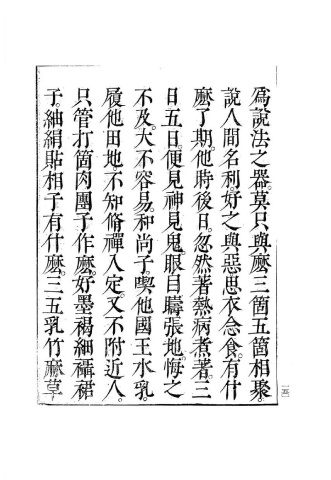 爲說法之器。莫只與麽三箇五箇相聚。
說人間名利。好之與惡。思衣念食。有什
麽了期。他時後日。忽然著熱病煮著。三
日五日。便見神見鬼。眼目𬑒張地。悔之
不及。大不容易。和尚子。喫他國王水乳。
履他田地。不知脩禪入定。又不附近人。
只管打箇肉團子作麽。好墨褐細襵裙
子。紬絹貼相子。有什麽。三五乳竹麻草
一五